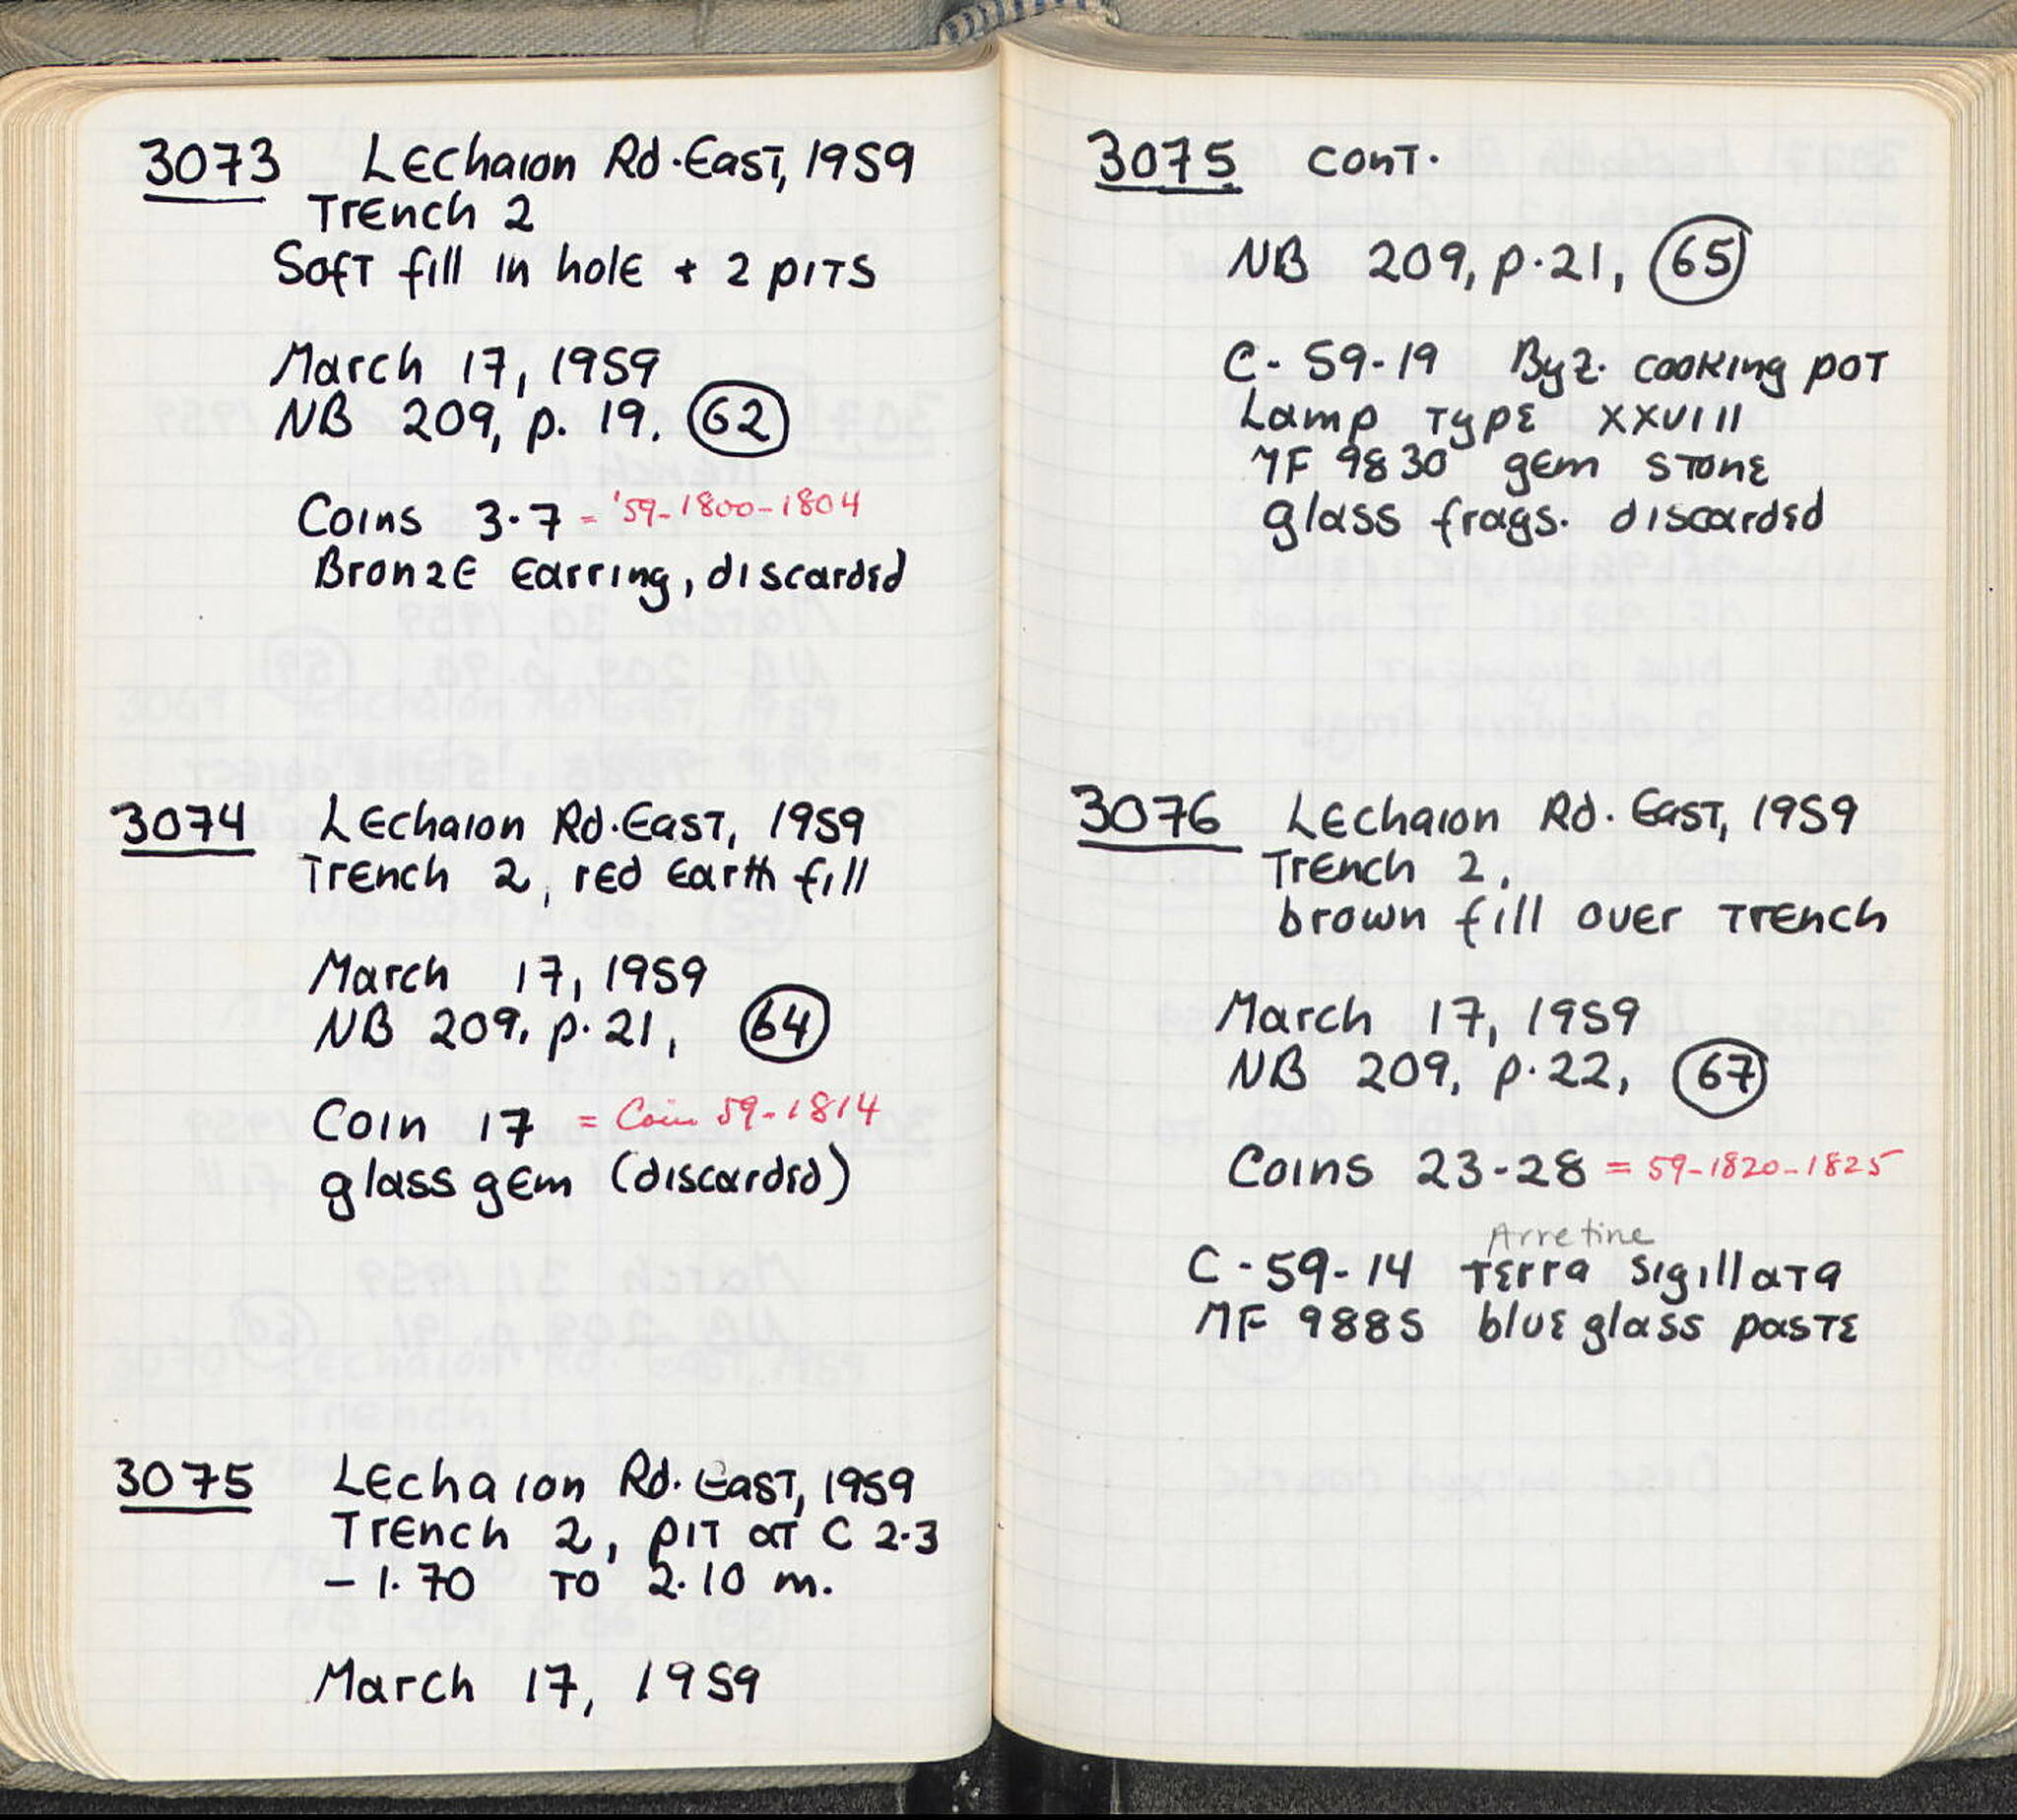 3073 Lechaion Rd. East, 1959
Trench 2
Soft fill in hole + 2 pits
March 17, 1959
NB 209, p. 19. 62
Coins 3-7 = '59-1800-1804
Bronze earring, discarded
3074 Lechaion Rd. East, 1959
Trench 2, red earth fill
March 17, 1959
NB 209, p. 21, 64
Coin 17 = Coin 59-1814
glass gem (discarded)
3075 Lechaion Rd. East, 1959
Trench 2, pit at C 2-3
- 1.70 to 2.10 m.
March 17, 1959
3075 cont.
NB 209, p. 21, 65
C-59-19 Byz. cooking pot
Lamp type XXVIII
MF 9830 gem stone
glass frags. discarded
3076 Lechaion Rd. East, 1959
Trench 2,
brown fill over trench
March 17, 1959
NB 209, p. 22, 67
Coins 23-28 = 59-1820-1825
Arretine
C-59-14 terra sigillata
MF 9885 blue glass paste